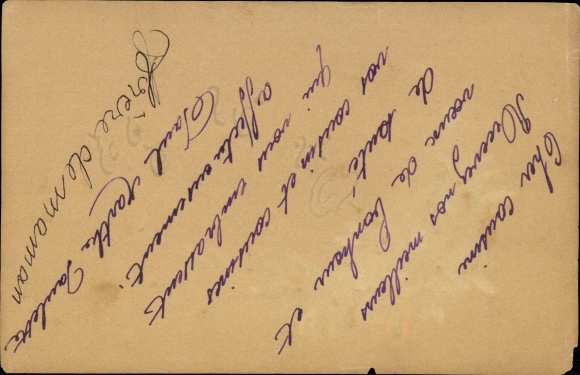 Cher cousin
Recevez nos meilleurs
vœux de bonheur et
de santé.
vos cousin et cousines
qui vous embrassent
affectueusement.
Paul Marthe Paulette
Frère de maman